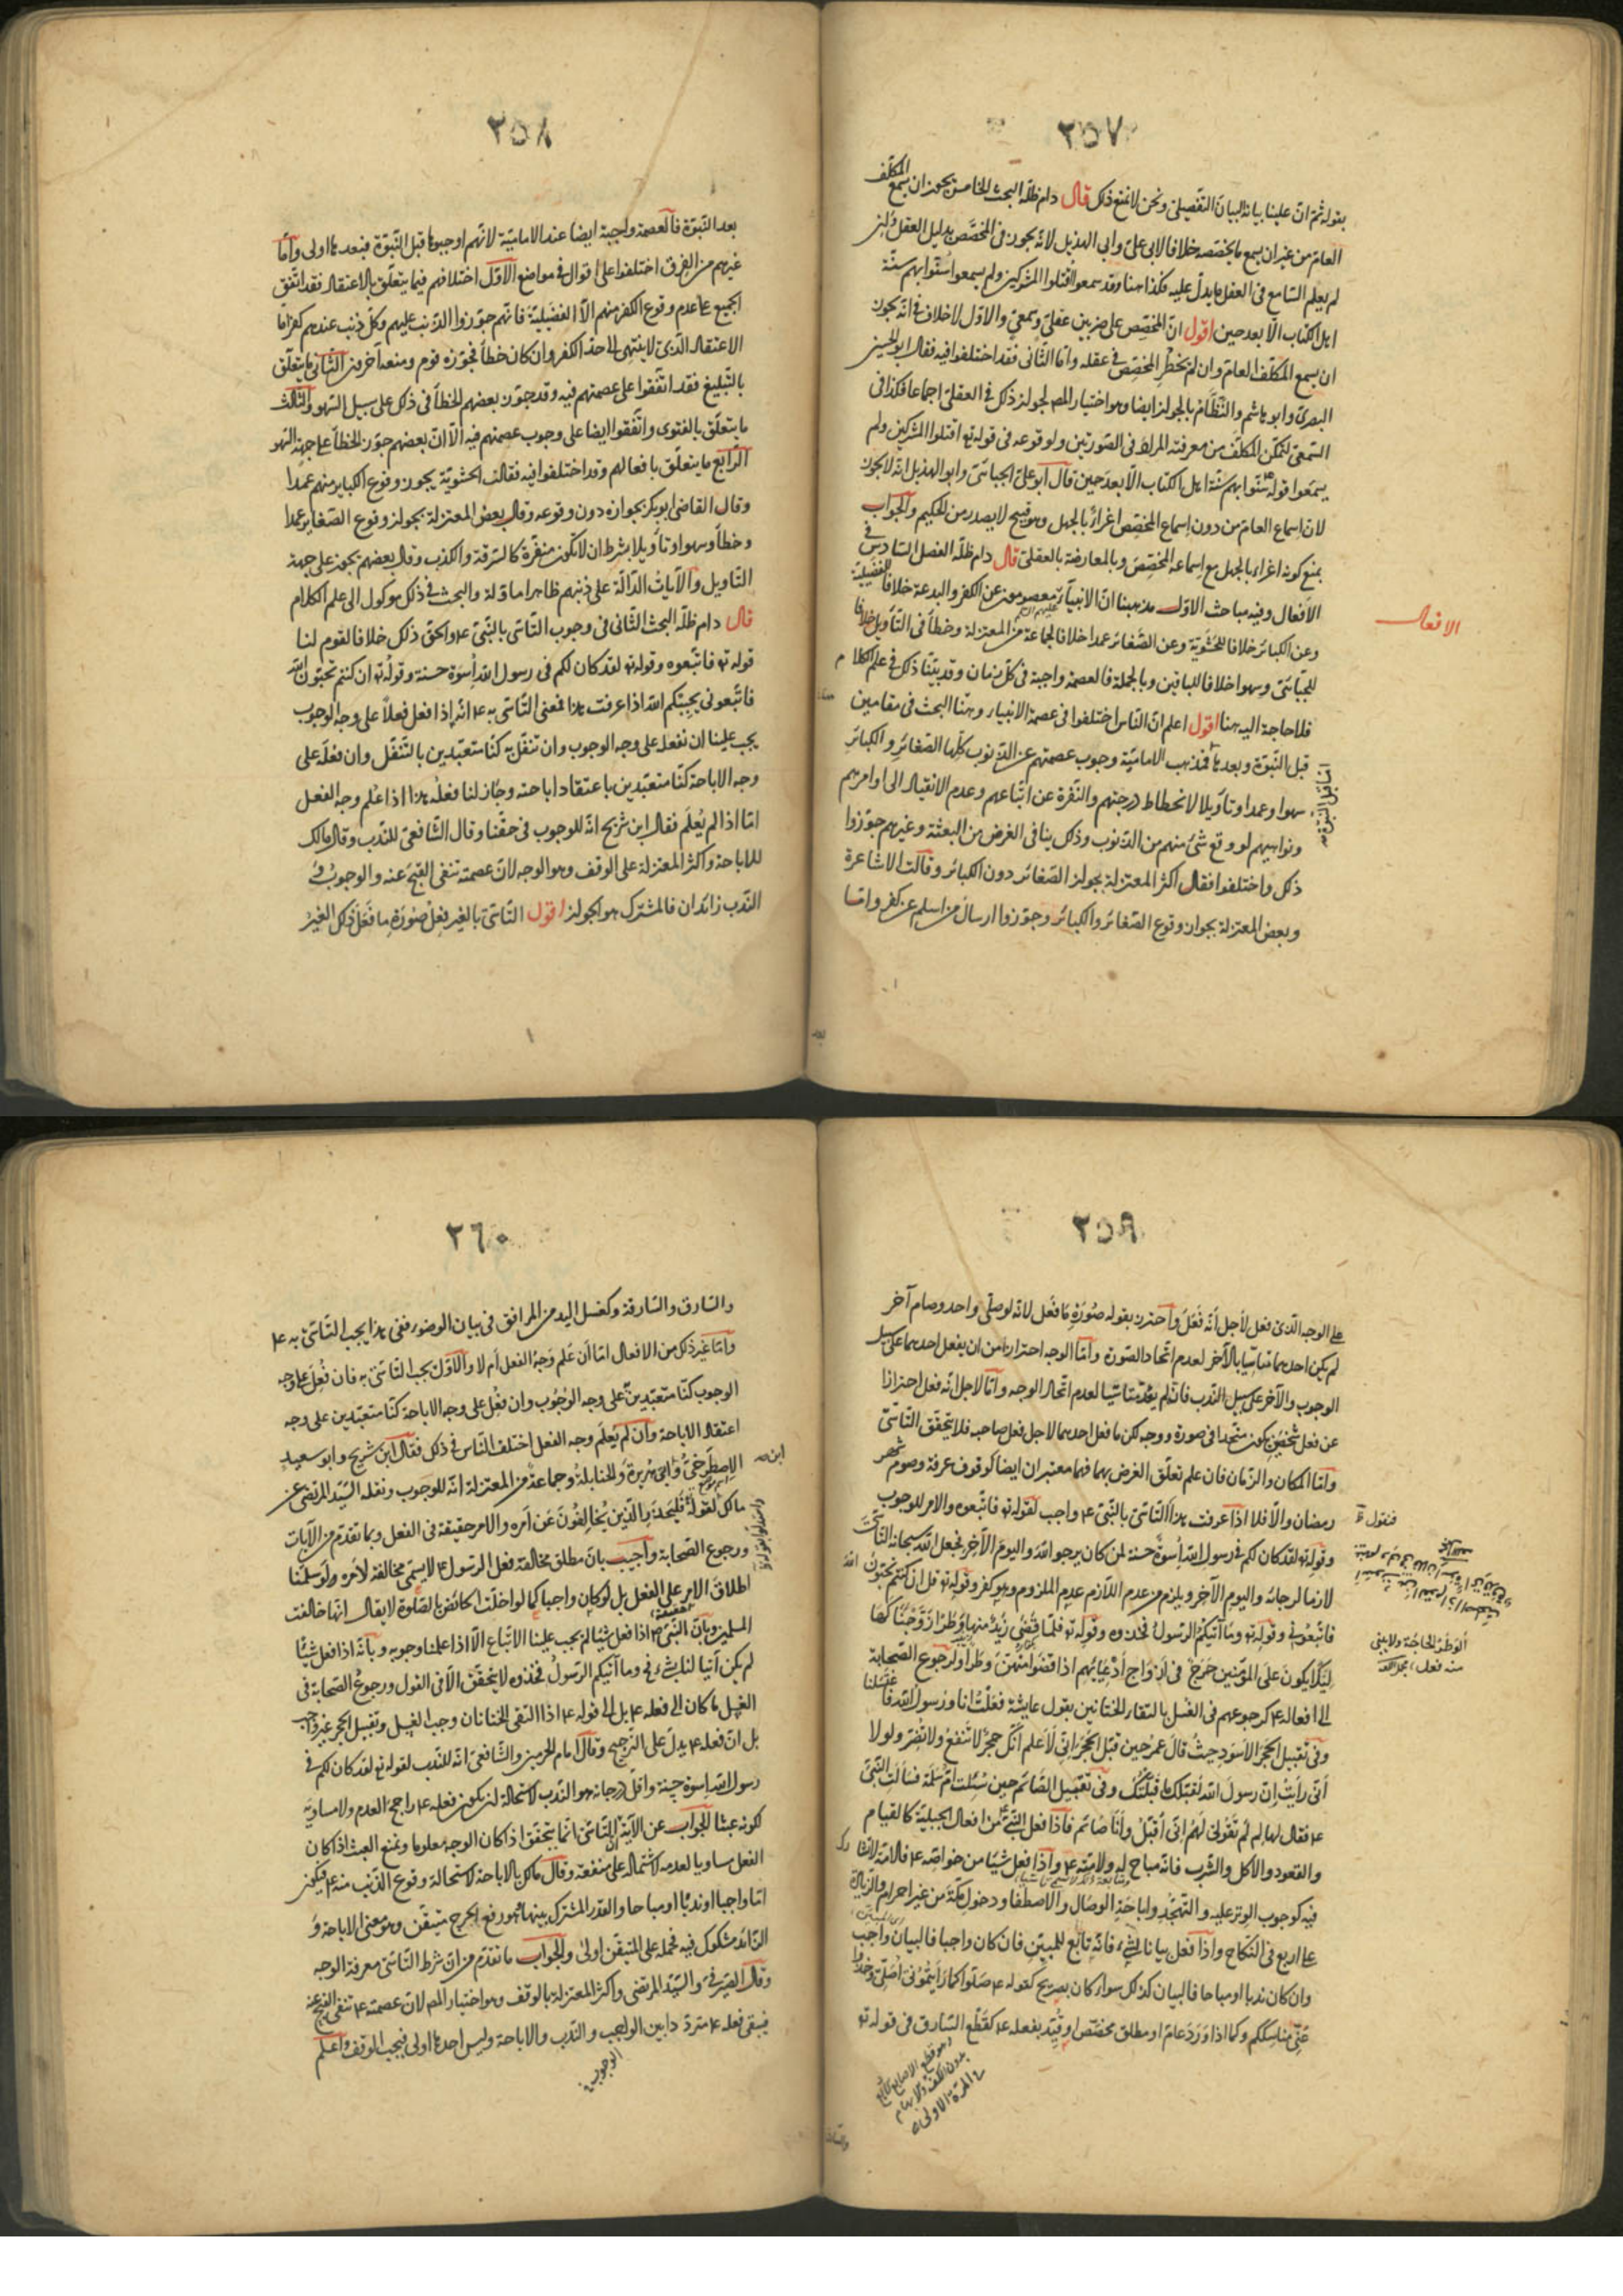 ٢٥٧
بقوله ثم ان علينا بيانه البيان التفصيلى ونحن لا نمنع ذلك قال دام ظله البحث الخامس يجوز ان يسمع المكلف
العام من غير ان يسمع ما يخصصه خلافا لابى على وابى الهذيل لانه يجوز فى المخصص بدليل العقل وان
لم يعلم السامع فى العقل ما يدل عليه فكذا هنا وقد سمعوا اقتلوا المشركين ولم يسمعوا سنوا بهم سنة
اهل الكتاب الا بعد حين اقول ان المخصص على ضربين عقلى وسمعى والاول لا خلاف فى انه يجوز
ان يسمع المكلف العام وان لم يخطر المخصص فى عقله واما الثانى فقد اختلفوا فيه فقال ابو الحسين
البصرى وابو هاشم والنظام بالجواز ايضا وهو اختيار المص لجواز ذلك فى العقلى اجماعا فكذا فى
السمعى لتمكن المكلف من معرفة المراد فى الصورتين ولوقوعه فى قوله تع اقتلوا المشركين ولم
يسمعوا قوله ص سنوا بهم سنة اهل الكتاب الا بعد حين قال ابو على الجبائى وابو الهذيل انه لا يجوز
لان اسماع العام من دون اسماع المخصص اغراء بالجهل وهو قبيح لا يصدر من الحكيم والجواب
بمنع كونه اغراء بالجهل مع اسماعه المخصص وبالمعارضة بالعقلى قال دام ظله الفصل السادس فى
الافعال وفيه مباحث الاول مذهبنا ان الانبياء عليهم السلم معصومون عن الكفر والبدعة خلافا للفضيلية
وعن الكبائر خلافا للحشوية وعن الصغائر عمدا خلافا لجماعة من المعتزلة وخطأ فى التأويل خلافا
للجبائى وسهوا خلافا للباقين وبالجملة فالعصمة واجبة فى كل زمان وقد بينا ذلك فى علم الكلام
فلا حاجة اليه هنا اقول اعلم ان الناس اختلفوا فى عصمة الانبياء وهنا البحث فى مقامين
قبل النبوة وبعدها فمذهب الامامية وجوب عصمتهم عن الذنوب كلها الصغائر والكبائر
سهوا وعمدا وتأويلا لانحطاط درجتهم والنفرة عن اتباعهم وعدم الانقياد الى اوامرهم
ونواهيهم لو وقع شئ منهم من الذنوب وذلك ينافى الغرض من البعثة وغيرهم جوزوا
ذلك واختلفوا فقال اكثر المعتزلة بجواز الصغائر دون الكبائر وقالت الاشاعرة
وبعض المعتزلة بجواز وقوع الصغائر والكبائر وجوزوا ارسال من اسلم عن كفر واما
الافعال
اما قبل النبوة
٢٥٨
بعد النبوة فالعصمة واجبة ايضا عند الامامية لانهم اوجبوها قبل النبوة فبعدها اولى واما
غيرهم من الفرق اختلفوا على اقوال فى مواضع الاول اختلافهم فيما يتعلق بالاعتقاد فقد اتفق
الجميع على عدم وقوع الكفر منهم الا الفضيلية فانهم جوزوا الذنب عليهم وكل ذنب عندهم كفر اما
الاعتقاد الذى لا ينتهى الى حد الكفر وان كان خطأ فجوزه قوم ومنعه آخرون الثانى ما يتعلق
بالتبليغ فقد اتفقوا على عصمتهم فيه وقد جوز بعضهم الخطأ فى ذلك على سبيل السهو والثالث
ما يتعلق بالفتوى واتفقوا ايضا على وجوب عصمتهم فيه الا ان بعضهم جوز الخطأ على جهة السهو
الرابع ما يتعلق بافعالهم وقد اختلفوا فيه فقالت الحشوية يجوز وقوع الكباير منهم عمدا
وقال القاضى ابو بكر بجوازه دون وقوعه وقال بعض المعتزلة بجواز وقوع الصغاير عمدا
وخطأ وسهوا وتأويلا بشرط ان لا تكون منفرة كالسرقة والكذب وقال بعضهم يجوز على جهة
التاويل والآيات الدالة على ذنبهم ظاهرا ماولة والبحث فى ذلك موكول الى علم الكلام
قال دام ظله البحث الثانى فى وجوب التاسى بالنبى ع والحق ذلك خلافا لقوم لنا
قوله تع فاتبعوه وقوله تع لقد كان لكم فى رسول الله اسوة حسنة وقوله تع ان كنتم تحبون الله
فاتبعونى يحببكم الله اذا عرفت هذا فمعنى التاسى به ع انه اذا فعل فعلا على وجه الوجوب
يجب علينا ان نفعله على وجه الوجوب وان تنفل به كنا متعبدين بالتنفل وان فعله على
وجه الاباحة كنا متعبدين باعتقاد اباحته وجاز لنا فعله هذا اذا علم وجه الفعل
اما اذا لم يعلم فقال ابن شريح انه للوجوب فى حقنا وقال الشافعى للندب وقال مالك
للاباحة واكثر المعتزلة على الوقف وهو الوجه لان عصمته تنفى القبح عنه والوجوب و
الندب زائدان فالمشترك هو الجواز اقول التاسى بالغير فعل صورة ما فعل ذلك الغير
٢٥٩
على الوجه الذى فعل لاجل انه فعل واحترز بقوله صورة ما فعل لانه لو صلى واحد وصام آخر
لم يكن احدهما متاسيا بالآخر لعدم اتحاد الصورة واما الوجه احترازا من ان يفعل احدهما على سبيل
الوجوب والآخر على سبيل الندب فانه لم يعد متاسيا لعدم اتحاد الوجه واما لاجل انه فعل احترازا
عن فعل شخصين يكون متحدا فى صورة ووجه لكن ما فعل احدهما لاجل فعل صاحبه فلا يتحقق التاسى
واما المكان والزمان فان علم تعلق الغرض بهما فهما معتبران ايضا كوقوف عرفة وصوم شهر
رمضان والا فلا اذا عرفت هذا التاسى بالنبى ع واجب لقوله تع فاتبعوه والامر للوجوب
وقوله تع لقد كان لكم فى رسول الله اسوة حسنة لمن كان يرجو الله واليوم الآخر فجعل الله سبحانه التاسى
لازما لرجائه واليوم الآخر ويلزم من عدم اللازم عدم الملزوم وهو كفر وقوله تع قل ان كنتم تحبون الله
فاتبعونى وقوله تع وما آتيكم الرسول فخذوه وقوله تع فلما قضى زيد منها وطرا زوجناكها
لكيلا يكون على المؤمنين حرج فى ازواج ادعيائهم اذا قضوا منهن وطرا ولرجوع الصحابة
الى افعاله ع كرجوعهم فى الغسل بالتقاء الختانين بقول عايشة فعلت انا ورسول الله فاغتسلنا
وفى تقبيل الحجر الاسود حيث قال عمر حين قبل الحجر انى لاعلم انك حجر لا تنفع ولا تضر ولولا
انى رايت ان رسول الله لقبلك ما قبلتك وفى تقبيل الصائم حين سئلت ام سلمة فسالت النبى
ع فقال لها لم لم تقولى لهم انى اقبل وانا صائم فاذا فعل النبى ع من افعال الجبلية كالقيام
والقعود والاكل والشرب فانه مباح له ولامته ع واذا فعل شيئا من خواصه ع فالامة لا تشارك
فيه كوجوب الوتر عليه والتهجد واباحة الوصال والاصطفا ودخول مكة من غير احرام والزيادة
على اربع فى النكاح واذا فعل بيانا لشئ فانه تابع للمبين فان كان واجبا فالبيان واجب
وان كان ندبا او مباحا فالبيان كذلك سواء كان بصريح كقوله ع صلوا كما رايتمونى اصلى وخذوا
عنى مناسككم وكما اذا ورد عام او مطلق مخصص او قيد بفعله ع كقطع السارق فى قوله تع
فنقول
الوطر الحاجة ولا يبنى
منه فعل مجمل اللغة
وهو قطع الاصابع الاربع
بدون الكف والابهام
فى المرة الاولى
٢٦٠
والسارق والسارقة وكغسل اليد من المرافق فى بيان الوضوء ففى هذا يجب التاسى به ع
واما غير ذلك من الافعال اما ان علم وجه الفعل ام لا والاول يجب التاسى به فان فعل على وجه
الوجوب كنا متعبدين على وجه الوجوب وان فعل على وجه الاباحة كنا متعبدين على وجه
اعتقاد الاباحة وان لم يعلم وجه الفعل اختلف الناس فى ذلك فقال ابن شريح وابو سعيد
الاصطرخى وابى هريرة والحنابلة وجماعة من المعتزلة انه للوجوب ونقله السيد المرتضى عن
مالك لقوله فليحذر الذين يخالفون عن امره والامر حقيقة فى الفعل وبما تقدم من الآيات
ورجوع الصحابة واجيب بان مطلق مخالفة فعل الرسول ع لا يسمى مخالفة لامره ولو سلمنا
اطلاق الامر على الفعل بل لو كان واجبا كما لو اخلت الحائض بالصلوة لا يقال انها خالفت
المسلمين وبان النبى ص اذا فعل شيئا لم يجب علينا الاتباع الا اذا علمنا وجوبه وبانه اذا فعل شيئا
لم يكن آتيا لنا بشئ وفى وما آتيكم الرسول فخذوه لا يتحقق الا فى القول ورجوع الصحابة فى
الغسل ما كان الى فعله ع بل الى قوله ع اذا التقى الختانان وجب الغسل وتقبيل الحجر غير واجب
بل ان فعله ع يدل على الترجيح وقال امام الحرمين والشافعى انه للندب لقوله تع لقد كان لكم فى
رسول الله اسوة حسنة واقل درجاته هو الندب لاستحالة ان يكون فعله ع راجح العدم ولا مساويه
لكونه عبثا الجواب عن الآية ان التاسى انما يتحقق اذ كان الوجه معلوما ونمنع العبث اذا كان
الفعل مساويا لعدمه لاشتماله على منفعة وقال مالك بالاباحة لاستحالة وقوع الذنب منه ع فيكون
اما واجبا او ندبا او مباحا والقدر المشترك بينها هو رفع الحرج متيقن وهو معنى الاباحة و
الزائد مشكوك فيه فحمله على المتيقن اولى والجواب ما تقدم من ان شرط التاسى معرفة الوجه
وقال الصيرفى والسيد المرتضى واكثر المعتزلة بالوقف وهو اختيار المص لان عصمته ع تنفى القبح عنه
فيبقى فعله ع مترددا بين الواجب والندب والاباحة وليس احدها اولى فيجب الوقف واعلم
ابن
الوجوب